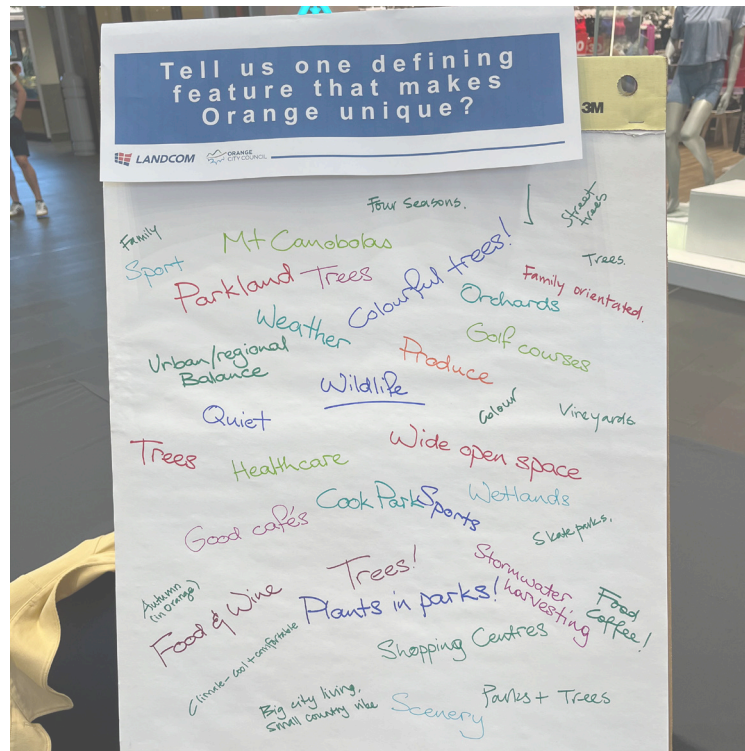 Tell us one defining
feature that makes
Orange unique?
LANDCOM
ORANGE
CITY COUNCIL
3M
Four Seasons.
Street
trees
Family
Mt Canobolas
Colourful trees!
Trees.
Sport
Parkland
Trees
Family orientated.
Orchards
Weather
Golf courses
Urban/regional
Balance
Produce
Wildlife
Colour
Vineyards
Quiet
Trees
Healthcare
Wide open space
Cook Park
Sports
Wetlands
Good cafés
Skateparks.
Trees!
Stormwater
harvesting
Autumn
(in Orange)
Food & Wine
Plants in parks!
Food
Coffee!
Climate - cool + comfortable
Shopping Centres
Big city living,
small country vibe
Scenery
Parks + Trees